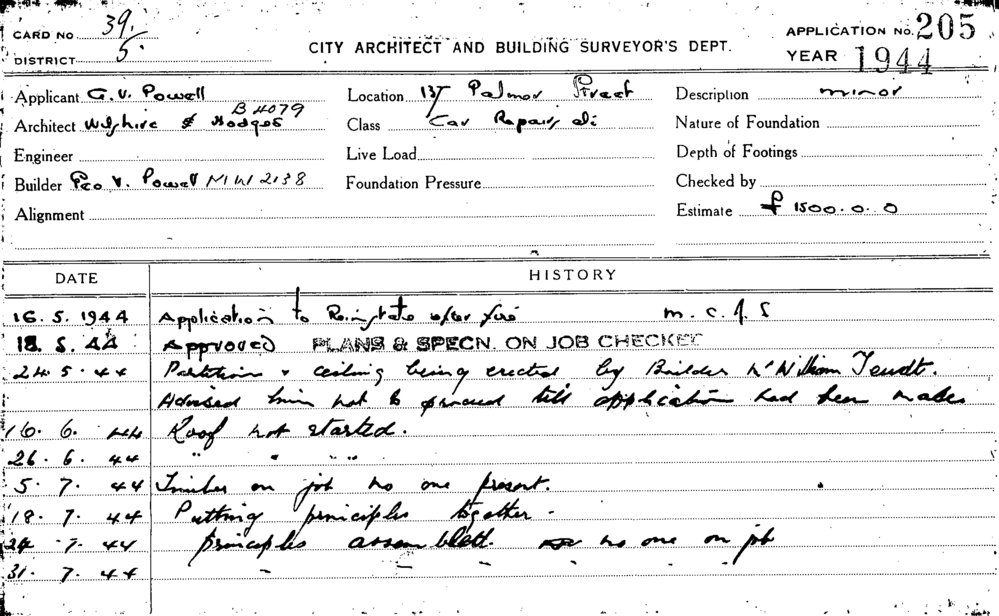 CARD NO 39/5.
DISTRICT
CITY ARCHITECT AND BUILDING SURVEYOR'S DEPT.
APPLICATION NO. 205
YEAR 1944
Applicant G. V. Powell
Location 137 Palmer Street
Description minor
B 4079
Architect Wilshire & Hodges
Class Car Repairs
Nature of Foundation
Engineer
Live Load
Depth of Footings
Builder Geo V. Powell MW 2138
Foundation Pressure
Checked by
Alignment
Estimate £ 1500.0.0
DATE HISTORY
16.5.1944 Application to Reinstate after fire
18.5.44 Approved PLANS & SPECN. ON JOB CHECKED
24.5.44 Partition & ceiling being erected by Builder William
Advised him not to proceed till application had been made
16.6.44 Roof not started.
26.6.44 " " " "
5.7.44 Timber on job no one present.
18.7.44 Putting principles together -
24.7.44 principles assembled. no one on job
31.7.44 - - - - -